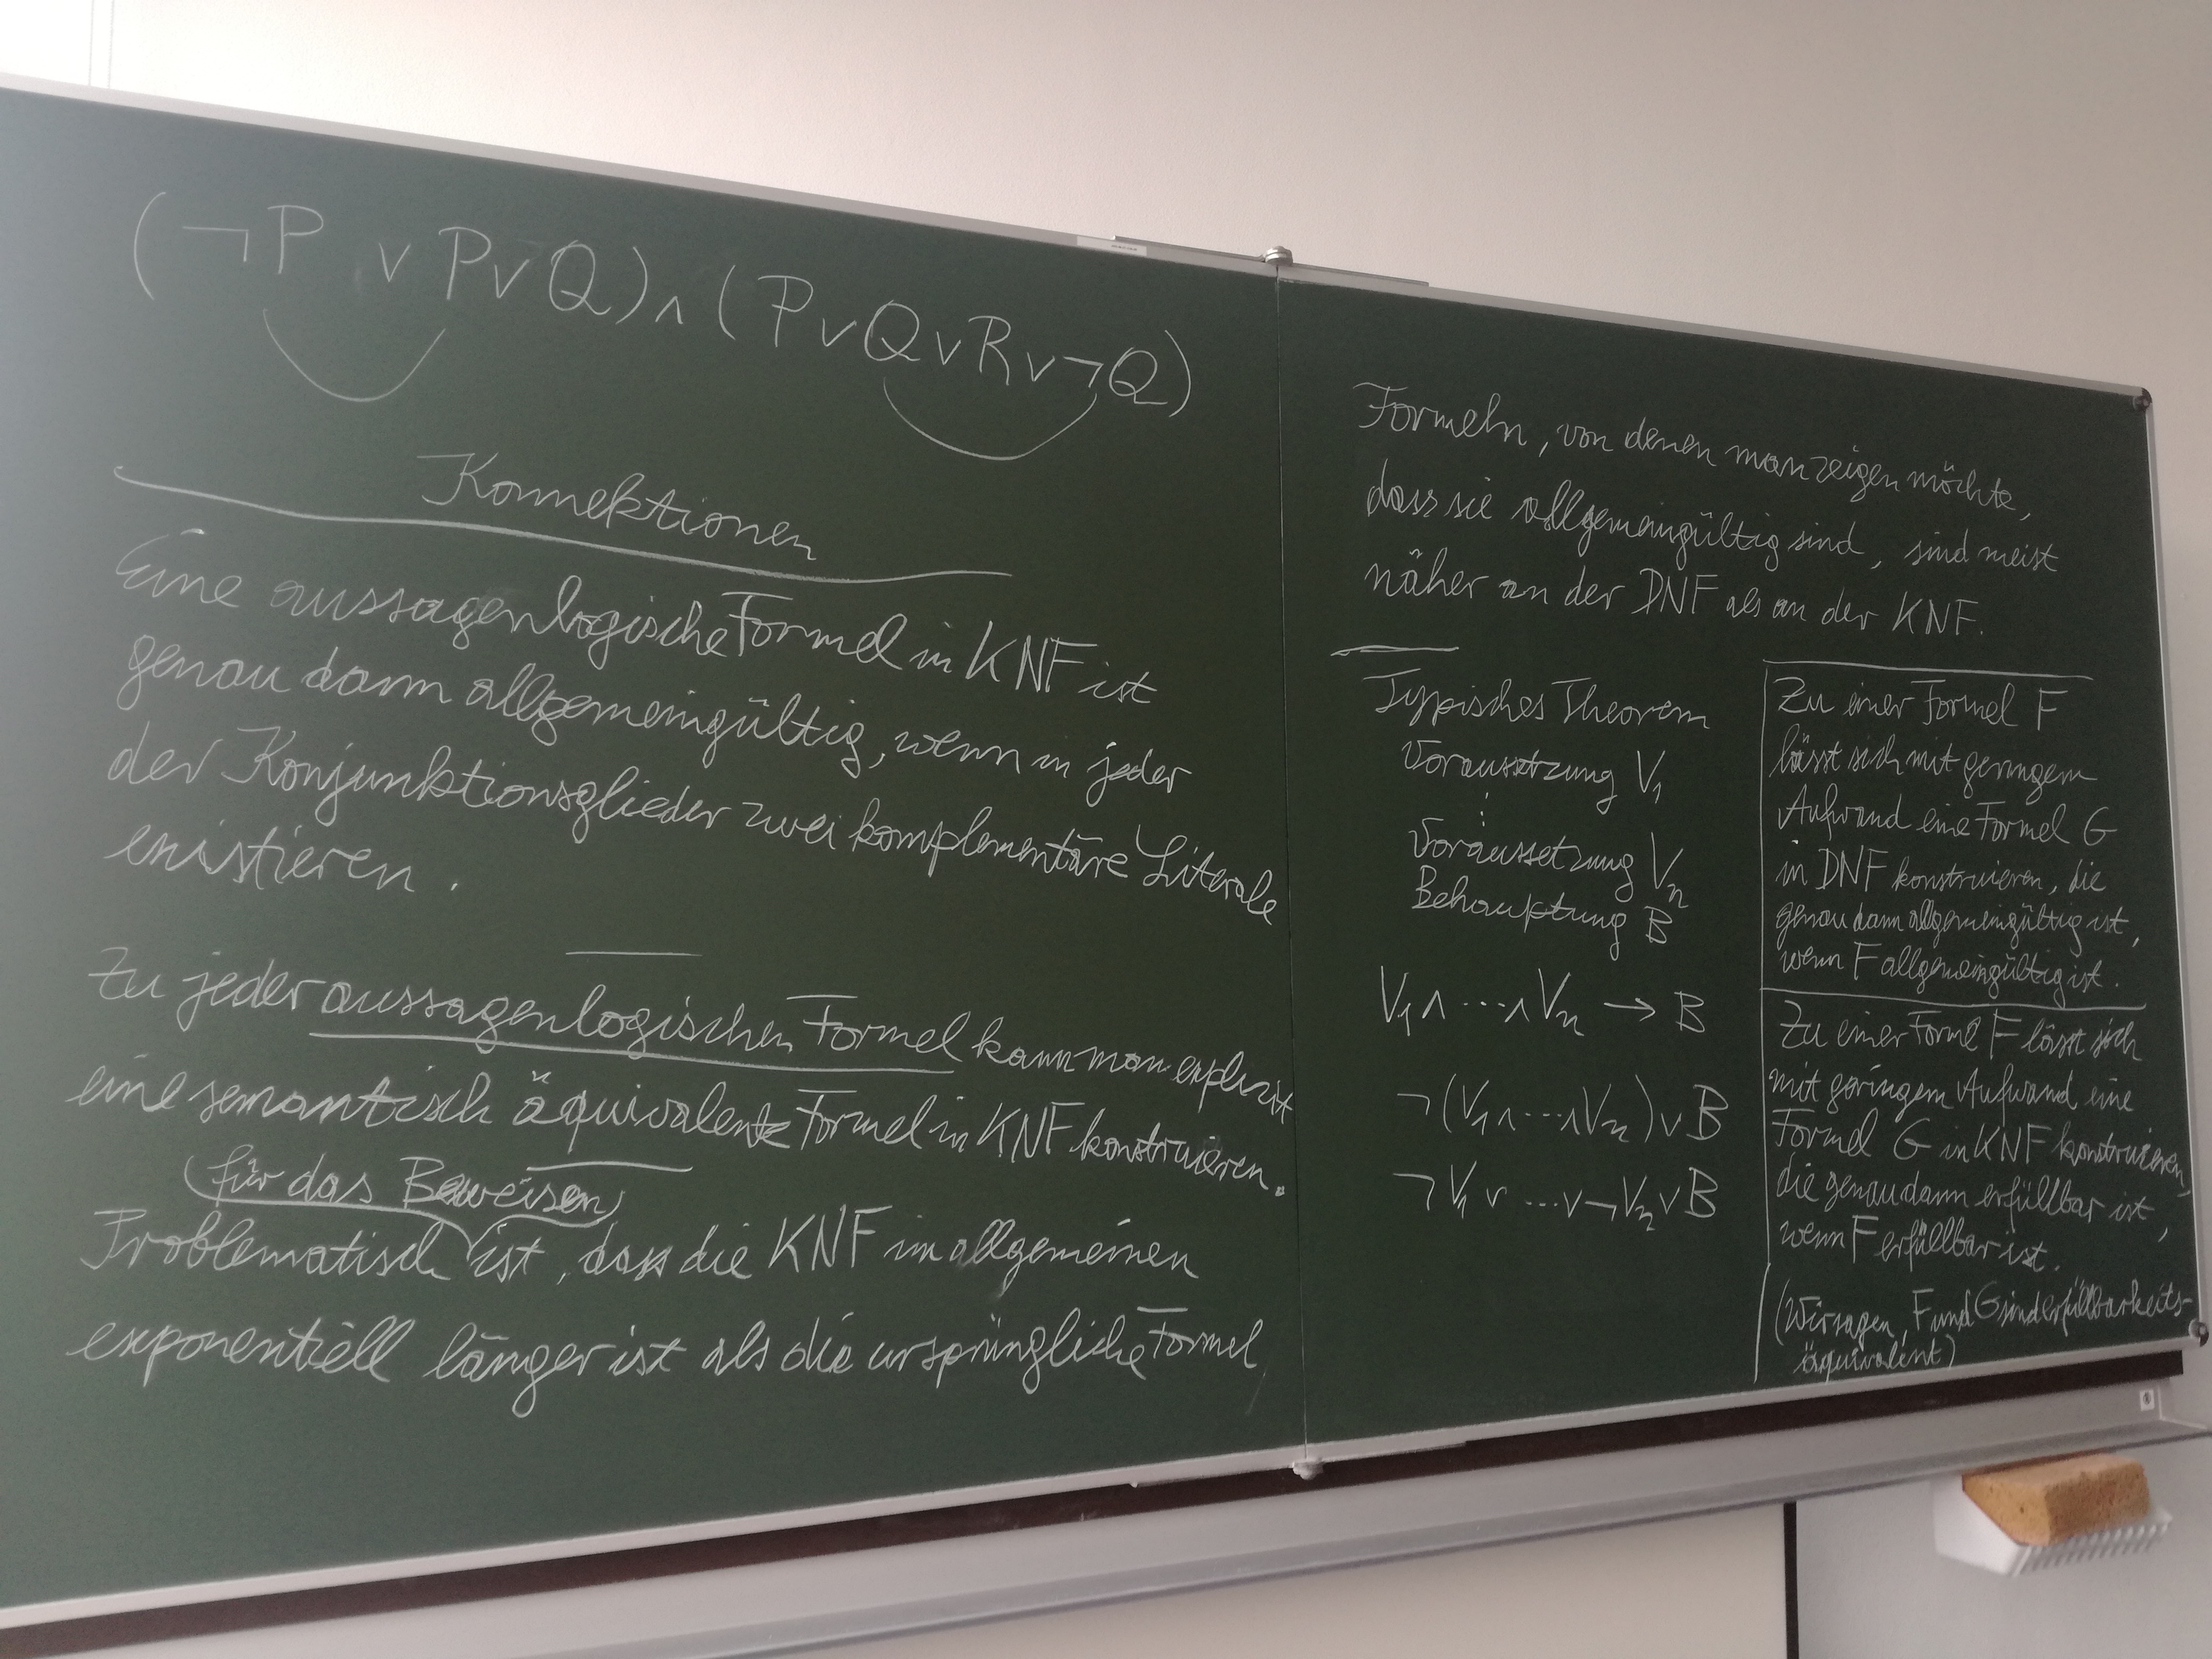 (¬P ∨ P ∨ Q) ∧ (P ∨ Q ∨ R ∨ ¬Q)
Konnektionen
Eine aussagenlogische Formel in KNF ist
genau dann allgemeingültig, wenn in jeder
der Konjunktionsglieder zwei komplementäre Literale
existieren.
Zu jeder aussagenlogischen Formel kann man explizit
eine semantisch äquivalente Formel in KNF konstruieren.
für das Beweisen
Problematisch ist, dass die KNF im allgemeinen
exponentiell länger ist als die ursprüngliche Formel
Formeln, von denen man zeigen möchte,
dass sie allgemeingültig sind, sind meist
näher an der DNF als an der KNF.
Typisches Theorem
Voraussetzung V₁
⋮
Voraussetzung Vₙ
Behauptung B
V₁ ∧ ⋯ ∧ Vₙ → B
¬(V₁ ∧ ⋯ ∧ Vₙ) ∨ B
¬V₁ ∨ ⋯ ∨ ¬Vₙ ∨ B
Zu einer Formel F
lässt sich mit geringem
Aufwand eine Formel G
in DNF konstruieren, die
genau dann allgemeingültig ist,
wenn F allgemeingültig ist.
Zu einer Formel F lässt sich
mit geringem Aufwand eine
Formel G in KNF konstruieren,
die genau dann erfüllbar ist,
wenn F erfüllbar ist.
(Wir sagen, F und G sind erfüllbarkeits-
äquivalent)